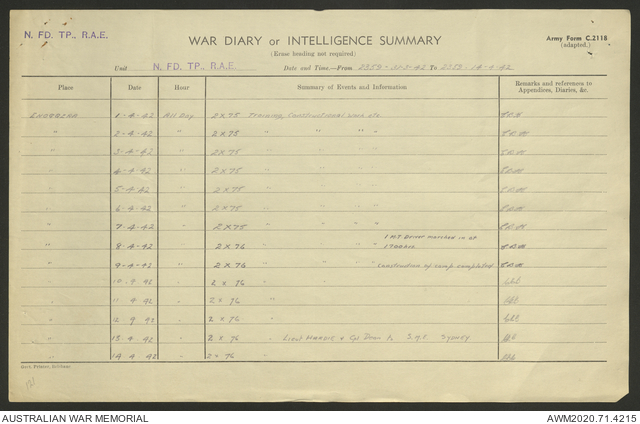 N. FD. TP., R.A.E.
WAR DIARY or INTELLIGENCE SUMMARY
Army Form C.2118
(adapted.)
(Erase heading not required)
Unit N. FD. TP., R.A.E. Date and Time—From 2359 - 31-3-42 To 2359 - 14-4-42
Place Date Hour Summary of Events and Information Remarks and references to
Appendices, Diaries, &c.
ENOGGERA 1-4-42 All Day 2 x 75 Training, Constructional work etc.
" 2-4-42 " 2 x 75 " " " "
" 3-4-42 " 2 x 75 " " " "
" 4-4-42 " 2 x 75 " " " "
" 5-4-42 " 2 x 75 " " " "
" 6-4-42 " 2 x 75 " " " "
" 7-4-42 " 2 x 75 " " " "
1 M.T. Driver marched in at
" 8-4-42 " 2 x 76 " " " " 1700
" 9-4-42 " 2 x 76 " " " " Construction of camp completed
" 10 4 42 " 2 x 76 "
" 11 4 42 " 2 x 76 "
" 12 4 42 " 2 x 76 "
" 13 4 42 " 2 x 76 " Lieut HARDIE & Cpl to S.M.E. SYDNEY
" 14 4 42 " 2 x 76
121
AUSTRALIAN WAR MEMORIAL
AWM2020.71.4215